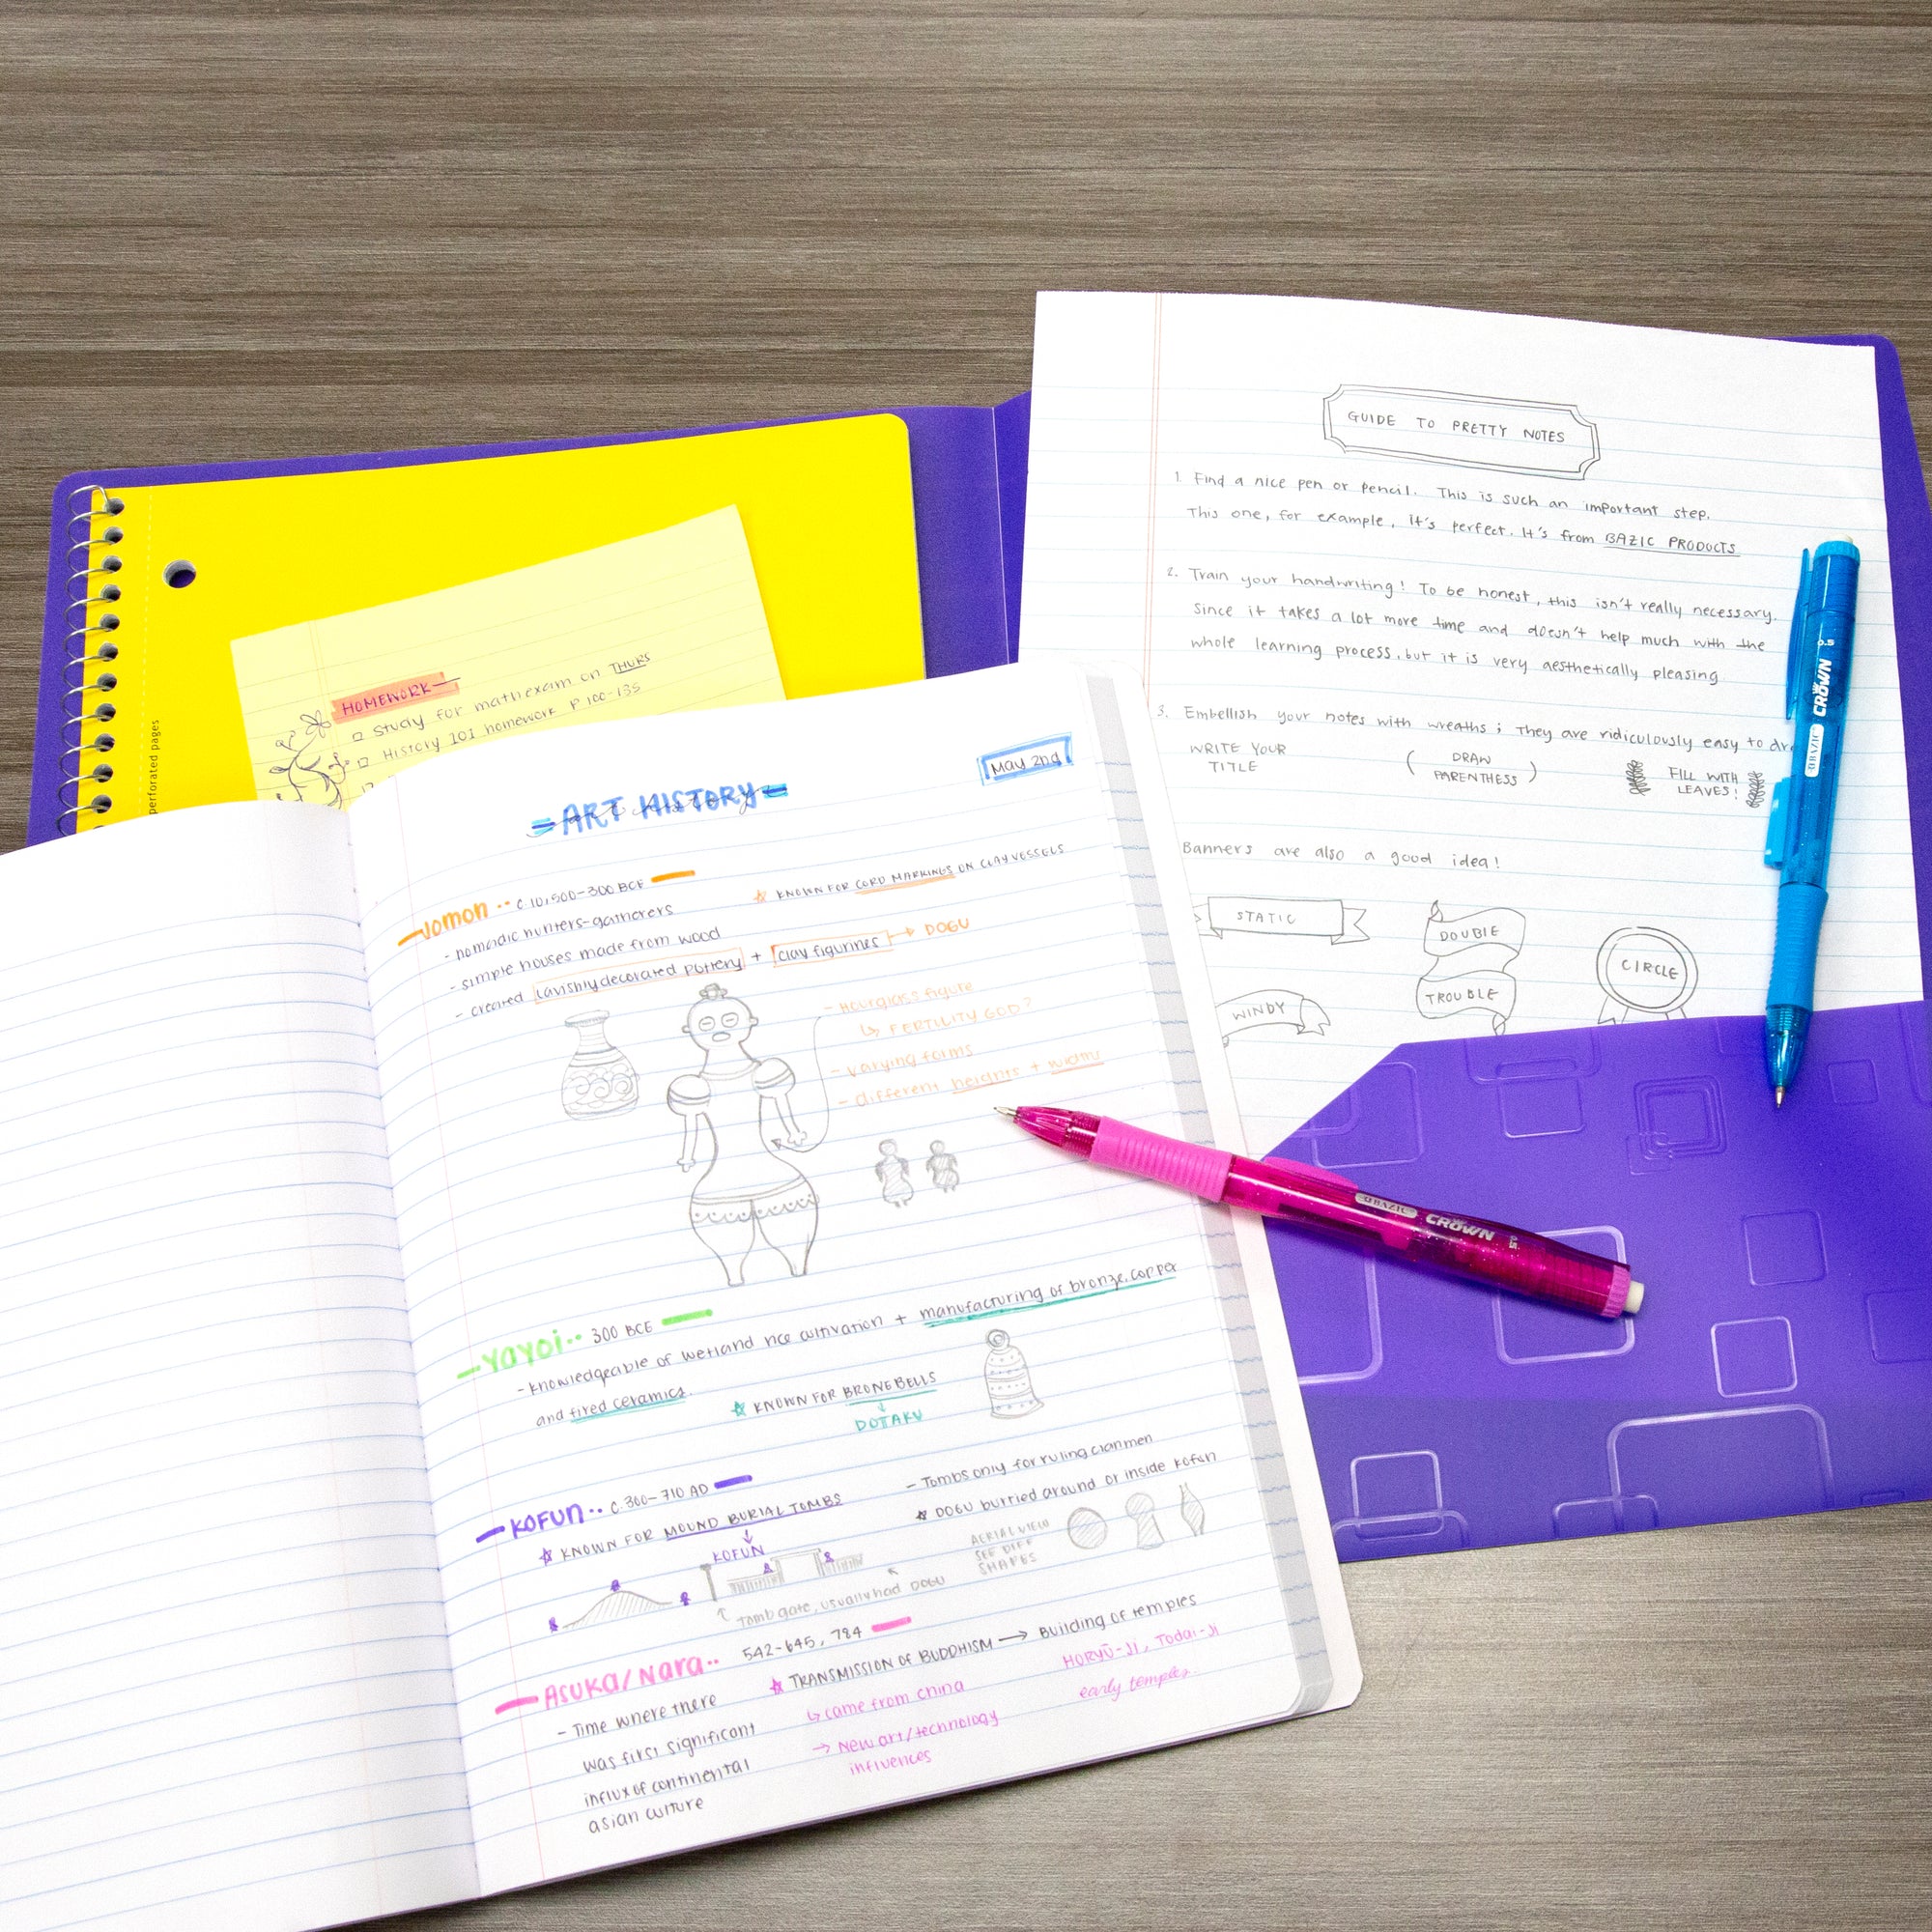 perforated pages
HOMEWORK
Study for math exam on THURS
History 101 homework P 100-135
ART HISTORY
art history
May 2nd
Jomon
c. 10,500-300 BCE
- nomadic hunters-gatherers
- simple houses made from wood
- created lavishly decorated pottery + clay figurines → DOGU
☆ KNOWN FOR CORD MARKINGS ON CLAY VESSELS
- Hourglass figure
↳ FERTILITY GOD?
- varying forms
- different heights + widths
Yayoi
300 BCE
- knowledgeable of wetland rice cultivation + manufacturing of bronze, copper
and fired ceramics.
☆ KNOWN FOR BRONE BELLS
↓
DOTAKU
KOFUN
c. 300-710 AD
☆ KNOWN FOR MOUND BURIAL TOMBS
↓
KOFUN
- Tombs only for ruling clanmen
☆ DOGU burried around or inside kofun
AERIAL VIEW
SEE DIFF
SHAPES
Tomb gate, usually had DOGU
Asuka/Nara
542-645, 784
- Time where there
was first significant
influx of continental
asian culture
☆ TRANSMISSION OF BUDDHISM → Building of temples
↳ came from china
→ New art/technology
influences
HORYŪ-JI, Todai-Ji
early temples.
GUIDE TO PRETTY NOTES
1. Find a nice pen or pencil. This is such an important step.
This one, for example, it's perfect. It's from BAZIC PRODUCTS
2. Train your handwriting! To be honest, this isn't really necessary.
Since it takes a lot more time and doesn't help much with the
whole learning process, but it is very aesthetically pleasing
3. Embellish your notes with wreaths; They are ridiculously easy to
WRITE YOUR
TITLE
DRAW
PARENTHESS
FILL WITH
LEAVES!
Banners are also a good idea!
STATIC
DOUBLE
TROUBLE
CIRCLE
WINDY
BAZIC CROWN 0.5
BAZIC CROWN 0.5